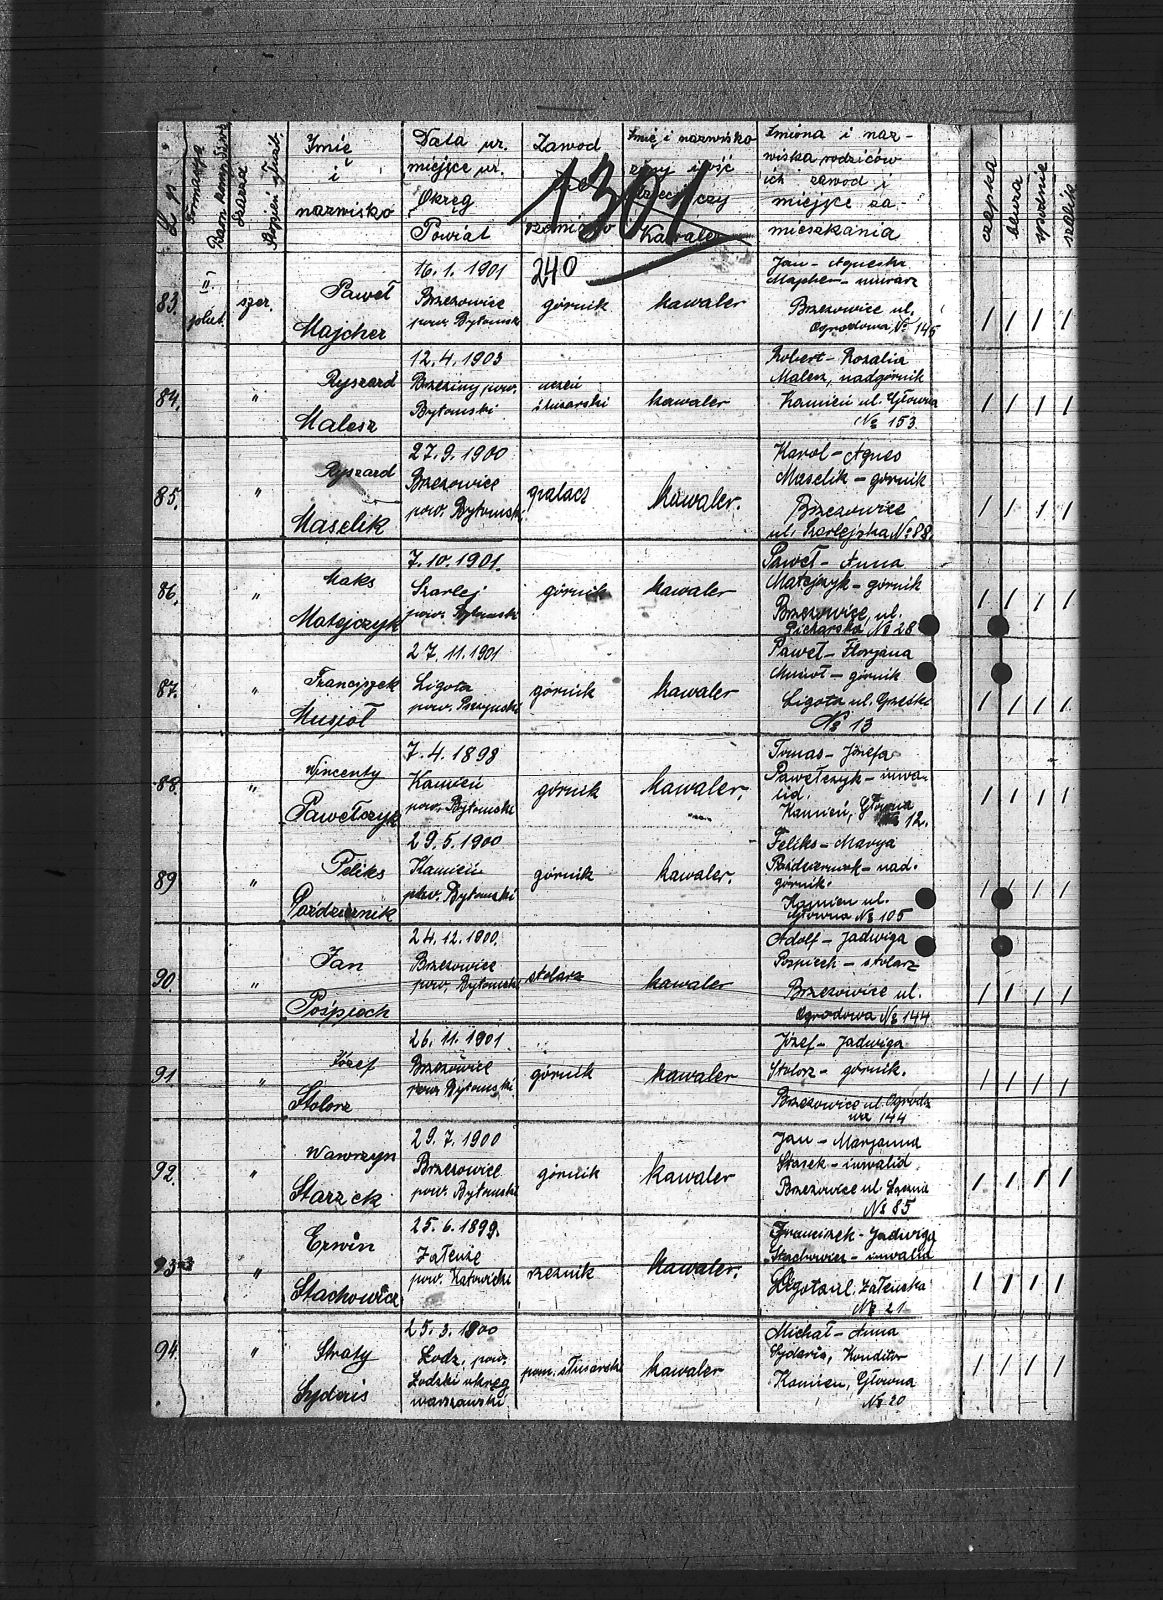 L. p.
Formacja
Baon kompanja
Szarża
Stopień służb.
Imię
i
nazwisko
Data ur.
miejsce ur.
Okręg
Powiat
Zawód
rzemiosło
Imię i nazwisko
żony ilość
dzieci czy
Kawaler
Imiona i naz-
wiska rodziców
ich zawód i
miejsce za-
mieszkania
czapka
bluza
spodnie
szalik
1301
240
83.
II
plut.
szer.
Paweł
Majcher
16.1.1901
Brzezowice
pow. Bytomski
górnik
kawaler
Jan - Agneska
Majcher - murarz
Brzezowice ul.
Ogrodowa, № 145
/ / / /
84.
"
Ryszard
Malesz
12.4.1903
Brzeziny pow.
Bytomski
uczeń
ślusarski
kawaler
Robert - Rozalia
Malesz, nadgórnik
Kamień ul. Główna
№ 153
/ / / /
85.
"
Ryszard
Maselik
27.9.1900
Brzezowice
pow. Bytomski
kawaler.
Karol - Agnes
Maselik - górnik
Brzezowice
ul. Szarlejska № 88.
/ / / /
86.
"
Maks
Matejczyk
7.10.1901.
Szarlej
pow. Bytomski
górnik
kawaler
Paweł - Anna
Matejczyk - górnik
Brzezowice, ul.
Piekarska № 28
/ / / /
87.
"
Franciszek
Musioł
27.11.1901
Ligota
pow. Pszczyński
górnik
kawaler
Paweł - Florjana
Musioł - górnik
Ligota ul.
№ 13
/ / / /
88.
"
Wincenty
Pawełczyk
7.4.1898
Kamień
pow. Bytomski
górnik
kawaler.
Tomas - Józefa
Pawełczyk - inwa-
lid.
Kamień, Główna
№ 12.
/ / / /
89
"
Feliks
Październik
29.5.1900
Kamień
pow. Bytomski
górnik
kawaler.
Feliks - Marya
Październik - nad-
górnik.
Kamień ul.
Główna № 105
/ / / /
90.
"
Jan
Pośpiech
24.12.1900.
Brzezowice
pow. Bytomski
stolarz
kawaler
Adolf - Jadwiga
Pośpiech - stolarz
Brzezowice ul.
Ogrodowa № 144
/ / / /
91
"
Józef
Stolorz
26.11.1901
Brzezowice
pow. Bytomski.
górnik
kawaler
Józef - Jadwiga
Stolorz - górnik.
Brzezowice ul. Ogrodo
wa 144
/ / / /
92.
"
Wawrzyn
Starzek
29.7.1900
Brzezowice
pow. Bytomski
górnik
kawaler
Jan - Marjanna
Stasek - inwalid
Brzezowice ul.
№ 85
/ / / /
93
"
Erwin
Stachowicz
25.6.1899.
Załeże
pow. Katowicki
rzeznik
kawaler.
Franciszek - Jadwiga
Stachowicz - inwalid
Ligota ul. Załenska
№ 21
/ / / /
94.
"
Straty
Syderis
25.3.1900
Łodz, pow.
Łodzki okręg
warszawski
pom. ślusarski
kawaler
Michał - Anna
Syderis, Konditor
Kamien, Główna
№ 20
/ / / /